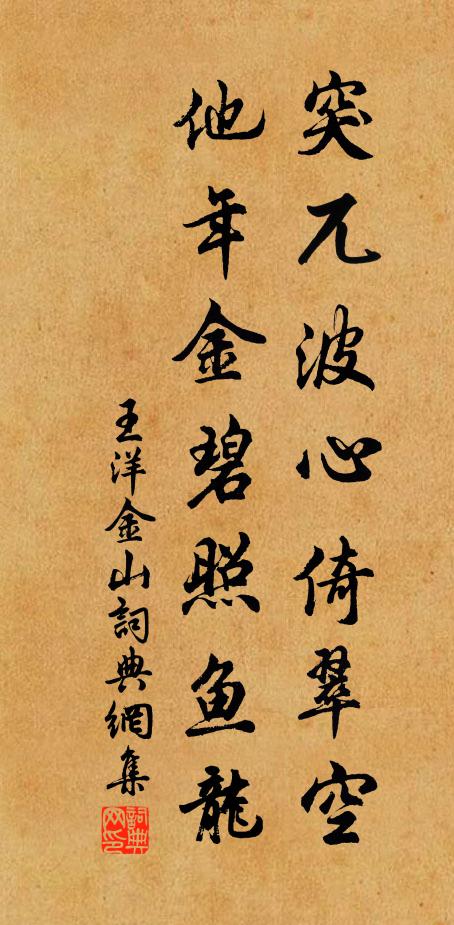 突兀波心倚翠空
他年金碧照鱼龍
王洋金山詞典網集
詞典网印